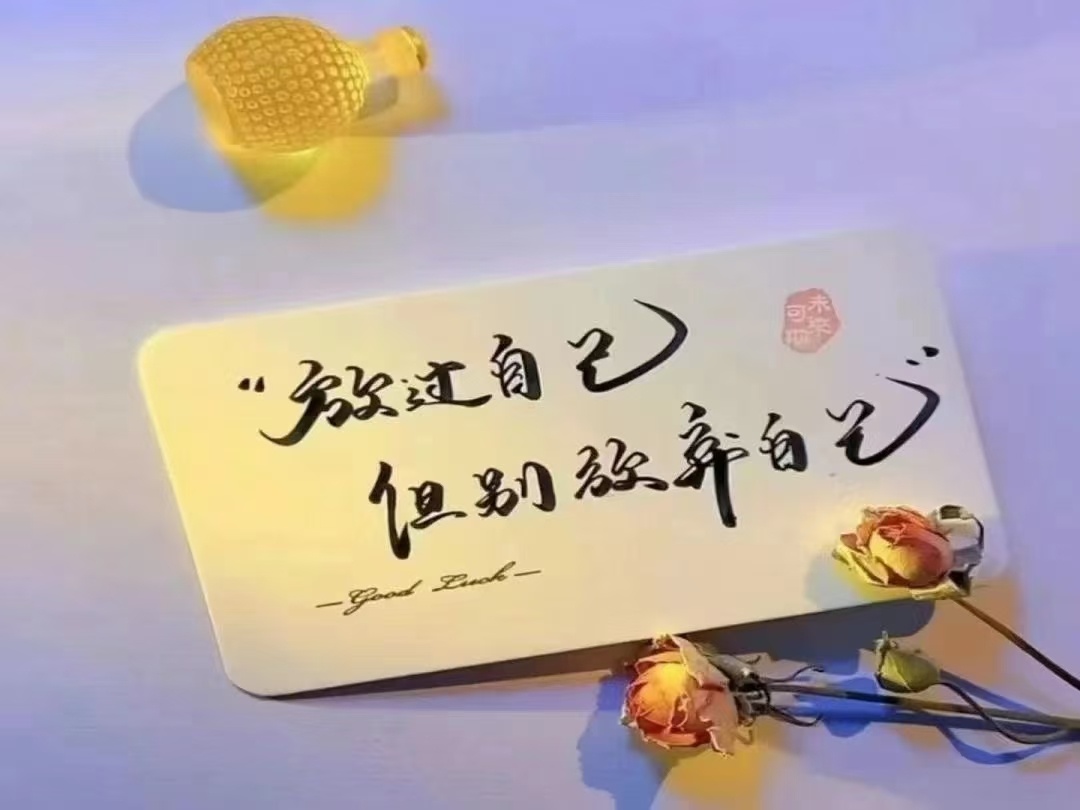 “放过自己
但别放弃自己”
—Good Luck—
未来
可期